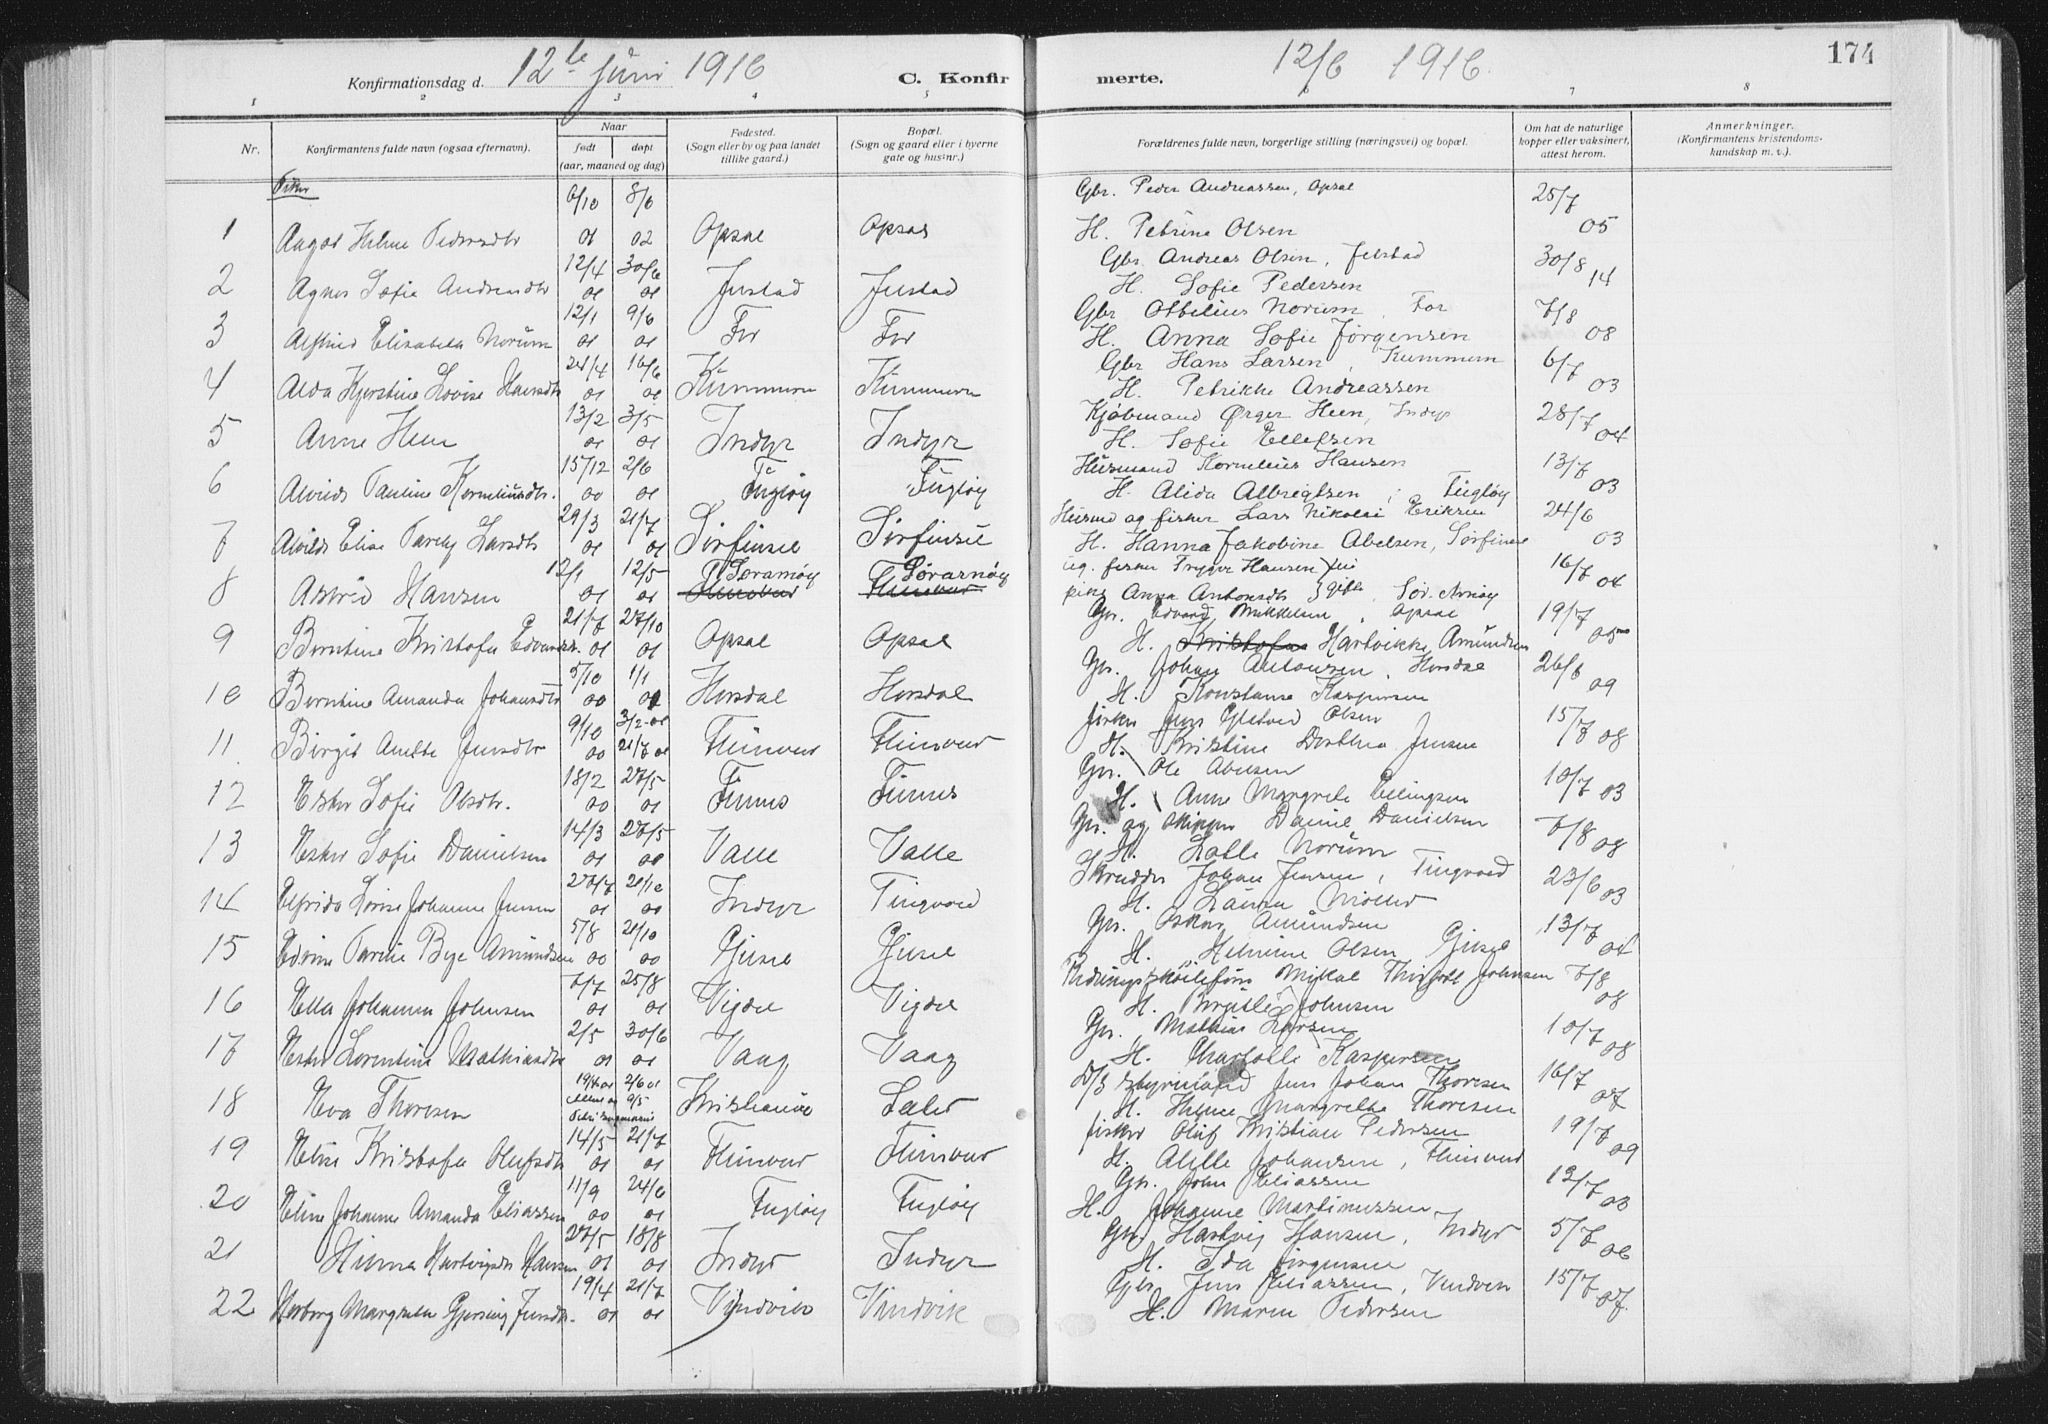 Konfirmationsdag d. 12te Juni 1916 C. Konfirmerte. 12/6 1916. 174
1 2 3 4 5 6 7 8
Nr.
Konfirmantens fulde navn (ogsaa efternavn).
Naar
født
døpt
(aar, maaned og dag)
Fødested.
(Sogn eller by og paa landet
tillike gaard.)
Bopæl.
(Sogn og gaard eller i byerne
gate og hus:nr.)
Forældrenes fulde navn, borgerlige stilling (næringsvei) og bopæl.
Om hat de naturlige
kopper eller vaksinert,
attest herom.
Anmerkninger.
(Konfirmantens kristendoms-
kundskap m. v.).
Piker
6/10 8/6 Gbr. Peder Andreassen, Opsal 25/7
1 Aagot Helene Pedersdtr 01 02 Opsal Opsal H. Petrine Olsen 05
12/4 30/6 Gbr. Andreas Olsen, Jelstad 30/8
2 Agnes Sofie Andreasdtr 01 01 Justad Justad H. Sofie Pedersen 14
12/1 9/6 Gbr Otbelius Norum, For 7/8
3 Elisabeth Norum 01 01 For For H. Anna Sofie Jørgensen 08
24/4 16/6 Gbr Hans Larsen, Kummern 6/7
4 Alda Kjerstine Lovise Hansdtr 01 01 Kummern Kummern H. Petrikke Andreassen 03
13/2 3/5 Kjøbmand Ørger Heen, Indyr 28/7
5 Anne Heen 01 01 Indyr Indyr H. Sofie Ellefsen 04
15/12 2/6 Husmand Kornelius Hansen 13/7
6 Alvilde Pauline Korneliusdtr. 00 01 Fugløy Fugløy H. Alida Albregtsen, Fugløy 03
29/3 21/7 Husmd og fisker Lars Nikolai Eriksen 24/6
7 Alvilde Elise Larsdtr 01 01 Sørfinset Sørfinset H. Hanna Jakobine Abelsen, Sørfinset 03
12/1 12/5 Sørarnøy Sørarnøy ug. fisker Trygve Hansen 16/7
8 Astrid Hansen 01 01 pike Anna Antonsdtr gifte, Sør. Arnøy 04
21/7 27/10 Gbr. Edvard Mikkelsen, Opsal 19/7
9 Berntine Kristofa Edvardsd. 01 01 Opsal Opsal H. Kristofa Hartvikke Amundsen 05
5/10 1/1 Gbr. Johan Antonsen, Horsdal 26/6
10 Berntine Amanda Johansdtr 00 01 Horsdal Horsdal H. Konstanse Kaspersen 09
9/10 3/2-01 fisker Jens Olsen 15/7
11 Birgit Anette Jensdtr 00 21/7 01 Fleinvær Fleinvær H. Kristine Dorthea Jensen 08
18/2 27/5 Gbr. Ole Abelsen 10/7
12 Ester Sofie Olsdtr. 00 01 Finnes Finnes H. Anne Margrete Ellingsen 03
14/3 27/5 Gbr. og skipper Daniel Danielsen 7/8
13 Ester Sofie Danielsen 01 01 Valle Valle H. Lotte Norum 08
27/7 21/10 Skrædder Johan Jensen, Tingvold 23/6
14 Elfrida Lovise Johanne Jensen 01 00 Indyr Tingvold H. Laura Møller 03
5/8 21/10 Gbr. Oskar Amundsen 13/7
15 Edvine Bye Amundsen 00 00 Gjusel Gjusel H. Helmine Olsen Gjusel 04
7/7 25/8 Mikal Johnsen 7/8
16 Ella Johanna Johnsen 01 01 Vigdel Vigdel H. Johnsen 08
2/5 30/6 Gbr. Mathias Larsen 10/7
17 Ester Lorentine Mathiasdtr 01 01 Vaag Vaag H. Charlotte Kaspersen 08
19/4 01 2/6 01 D/S Styrmand Jens Johan Thoresen 16/7
18 Eva Thoresen 9/5 Kristiania H. Helene Margrethe Thoresen 07
14/5 21/7 fisker Oluf Kristian Pedersen 19/7
19 Elise Kristofa Olufsdtr 01 01 Fleinvær Fleinvær H. Alette Johansen, Fleinvær 09
11/9 24/6 Gbr. John Eliassen 13/7
20 Eline Johanne Amanda Eliassen 00 01 Fugløy Fugløy H. Johanne Martinussen 03
27/5 18/8 Gbr. Hartvig Hansen, Indyr 5/7
21 Hartvigsdtr Hansen 01 01 Indyr Indyr H. Ida Jørgensen 06
19/4 21/7 Gbr. Jens Eliassen, Vindvik 15/7
22 Herborg Margrethe Jensdtr. 01 01 Vindvik Vindvik H. Maren Pedersen 07